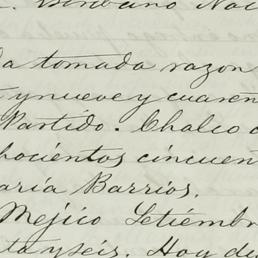 . Borbano Nac
da tomada razon
ynueve y cuaren
Partido. Chalco
hocientos cincuen
aría Barrios.
Mejico Setiembr
ta y seis. Hoy de